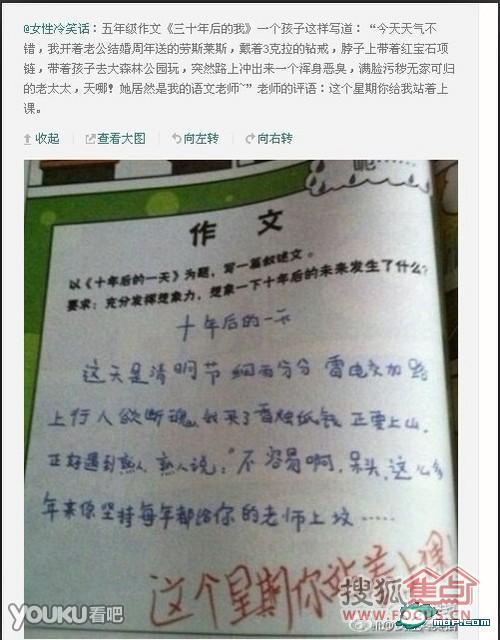 @女性冷笑话：五年级作文《三十年后的我》一个孩子这样写道：“今天天气不
错，我开着老公结婚周年送的劳斯莱斯，戴着3克拉的钻戒，脖子上带着红宝石项
链，带着孩子去大森林公园玩，突然路上冲出来一个浑身恶臭，满脸污秽无家可归
的老太太，天哪！她居然是我的语文老师~”老师的评语：这个星期你给我站着上
课。
收起 查看大图 向左转 向右转
呢……
作 文
以《十年后的一天》为题，写一篇叙述文。
要求：充分发挥想象力，想象一下十年后的未来发生了什么？
十年后的一天
这天是清明节 细雨分分 雷电交加 路
上行人欲断魂，我买了香烛纸钱 正要上山，
正好遇到熟人，熟人说：“不容易啊，呆头，这么多
年来你坚持每年都给你的老师上坟……
这个星期你站着上课！
搜狐焦点
WWW.FOCUS.CN
YOUKU看吧
mop.com